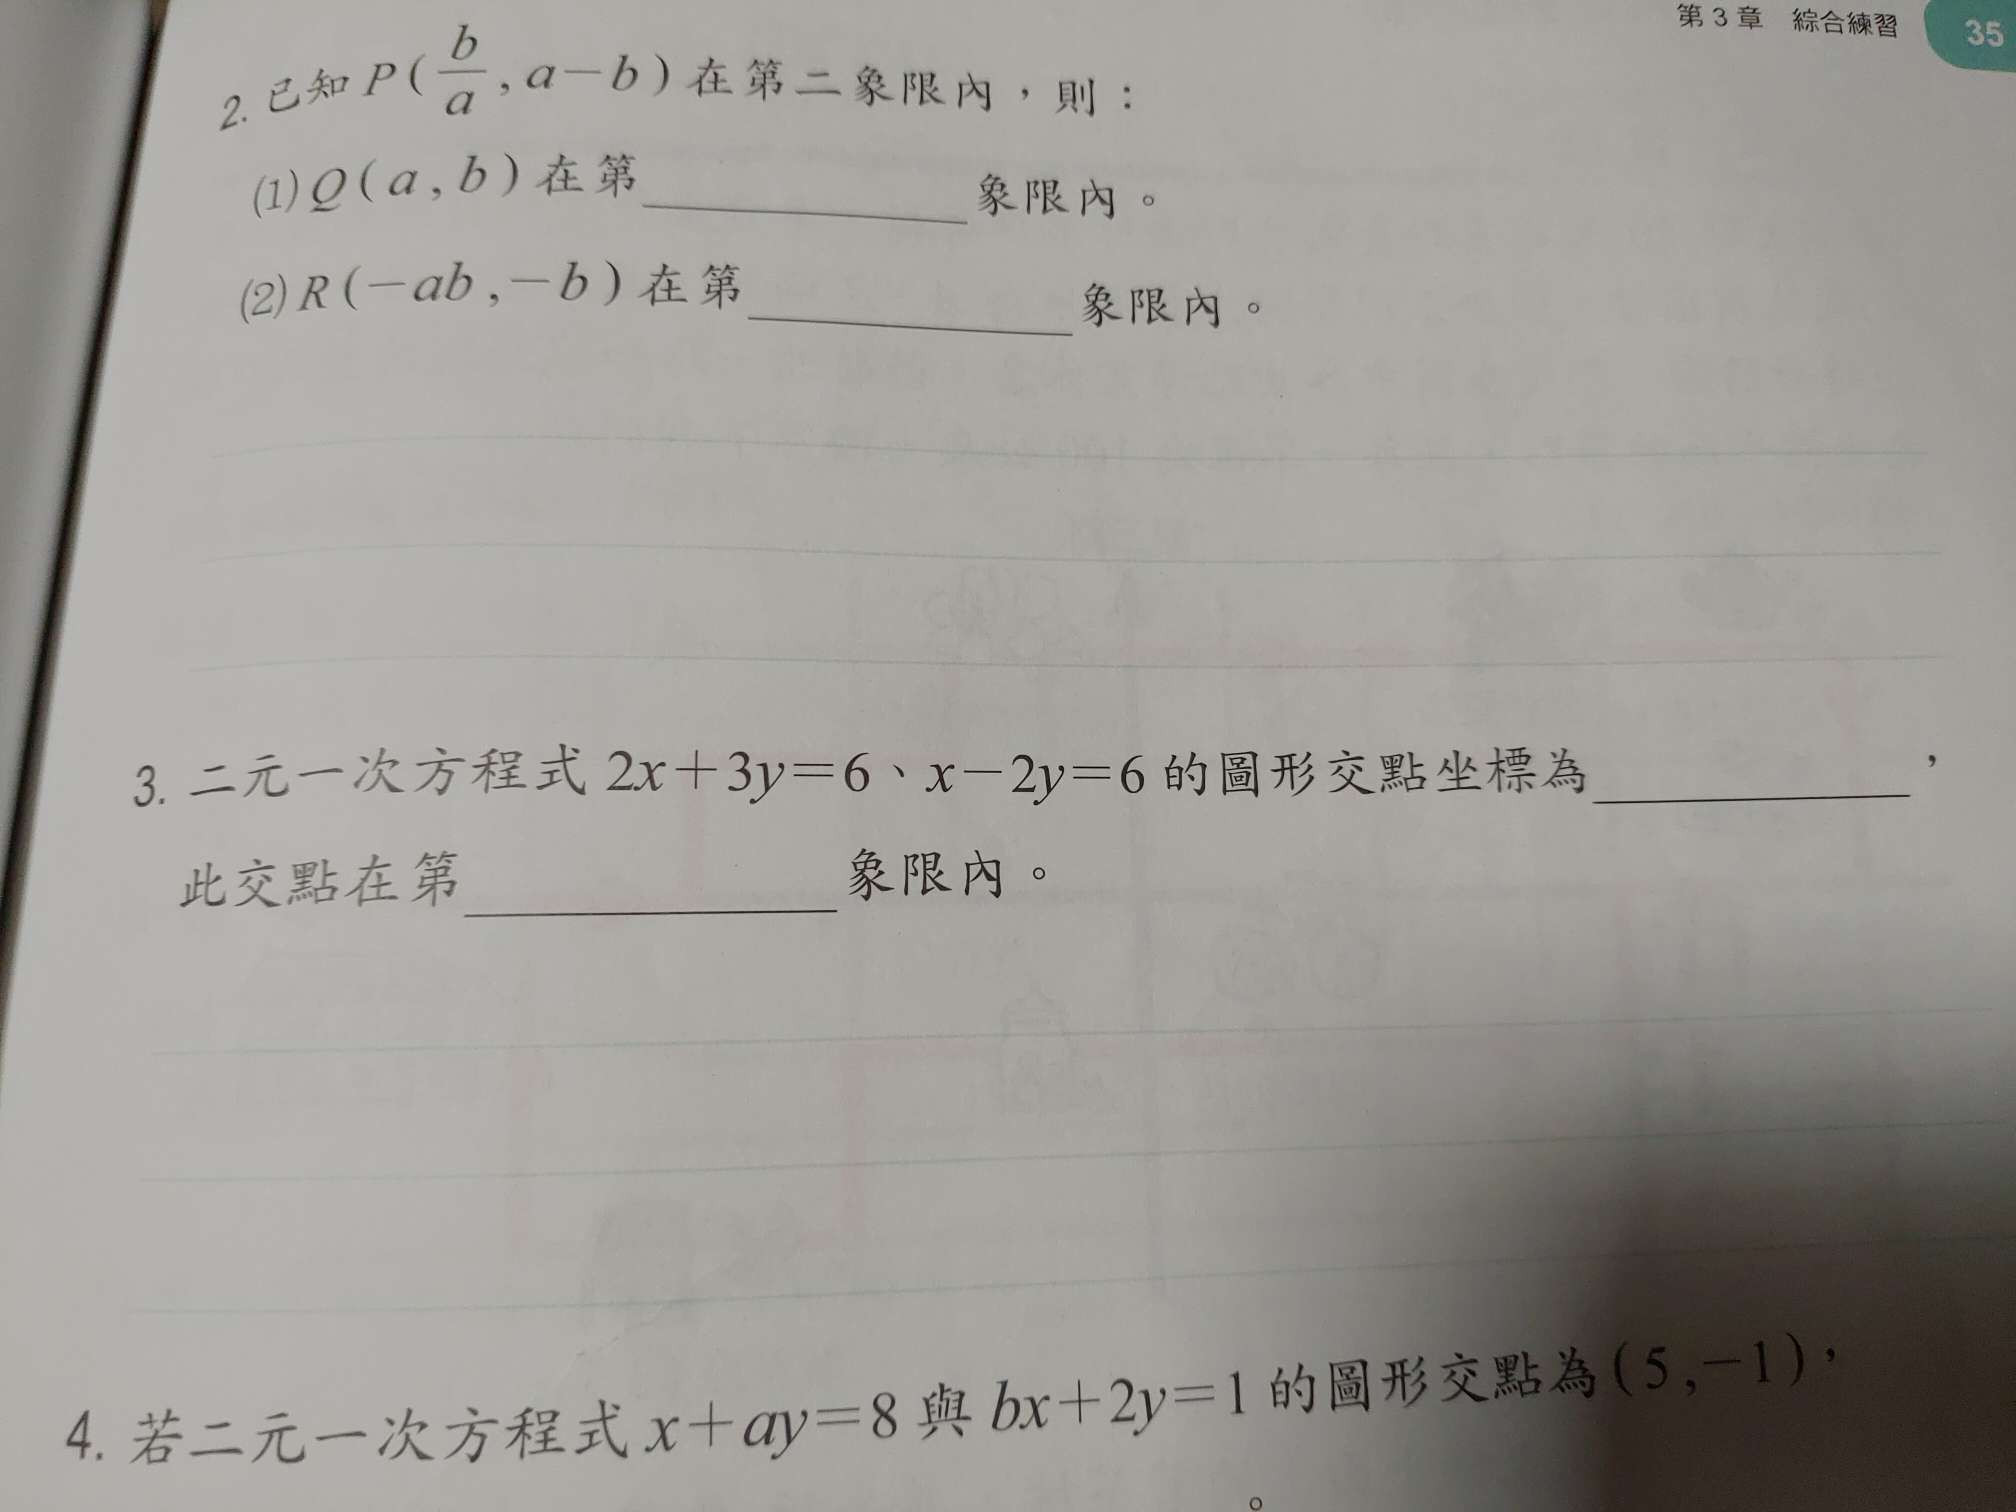 第3章 綜合練習 35
2. 已知 P(b/a , a−b) 在第二象限內，則：
(1) Q(a , b) 在第＿＿＿＿象限內。
(2) R(−ab , −b) 在第＿＿＿＿象限內。
3. 二元一次方程式 2x+3y=6、x−2y=6 的圖形交點坐標為＿＿＿＿，
此交點在第＿＿＿＿象限內。
4. 若二元一次方程式 x+ay=8 與 bx+2y=1 的圖形交點為(5 , −1)，
。